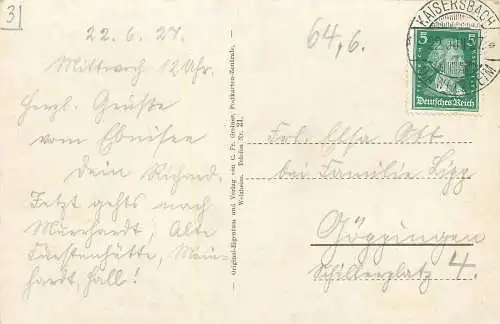 3)
22.6.27.
Mittwoch 12 Uhr.
Herzl. Grüße
vom Ebnisee
Dein Richard.
Jetzt gehts nach
Murrhardt, Alte
hardt, Hall!
64,6.
Original-Eigentum und Verlag von C. Fr. Greiner, Postkarten-Zentrale,
Welzheim. Telefon Nr. 21.
KAISERSBACH
5 5
Deutsches Reich
Frl. Elsa Ott
bei Familie Lipp
Göppingen
Schillerplatz 4.